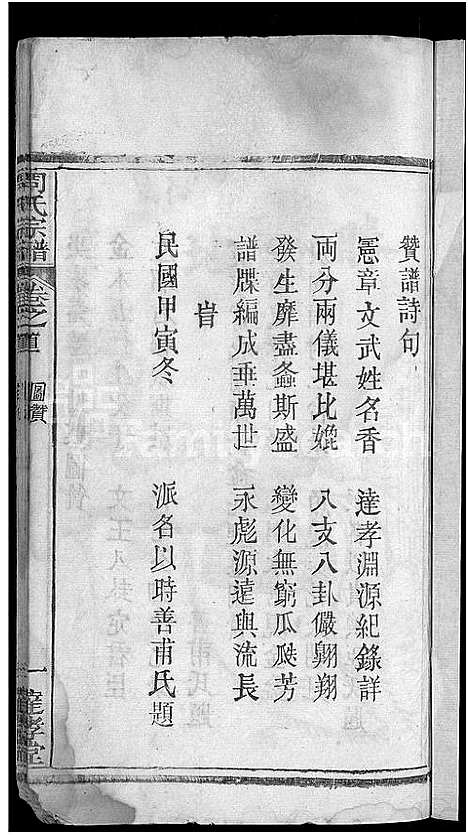 贊譜詩句
憲章文武姓名香 達孝淵源紀錄詳
両分兩儀堪比媲 八支八卦儼翺翔
發生靡盡螽斯盛 變化無窮瓜瓞芳
譜牒編成垂萬世 永彪源遠與流長
旹
民國甲寅冬 派名以時善甫氏題
周氏宗譜 卷之首 圖贊 一 達孝堂